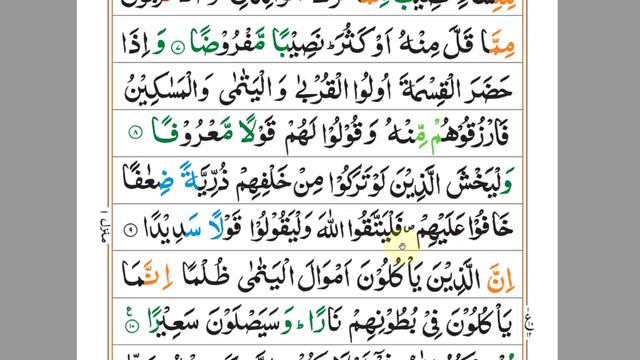 مِمَّا قَلَّ مِنْهُ اَوْ كَثُرَ ؕ نَصِيْبًا مَّفْرُوْضًا ﴿۷﴾ وَ اِذَا
حَضَرَ الْقِسْمَةَ اُولُوا الْقُرْبٰى وَ الْيَتٰمٰى وَ الْمَسٰكِيْنُ
فَارْزُقُوْهُمْ مِّنْهُ وَ قُوْلُوْا لَهُمْ قَوْلًا مَّعْرُوْفًا ﴿۸﴾
وَلْيَخْشَ الَّذِيْنَ لَوْ تَرَكُوْا مِنْ خَلْفِهِمْ ذُرِّيَّةً ضِعٰفًا
خَافُوْا عَلَيْهِمْ ۪ فَلْيَتَّقُوا اللّٰهَ وَلْيَقُوْلُوْا قَوْلًا سَدِيْدًا ﴿۹﴾
منزل ۱
اِنَّ الَّذِيْنَ يَاْكُلُوْنَ اَمْوَالَ الْيَتٰمٰى ظُلْمًا اِنَّمَا
يَاْكُلُوْنَ فِيْ بُطُوْنِهِمْ نَارًا ؕ وَ سَيَصْلَوْنَ سَعِيْرًا ﴿۱۰﴾